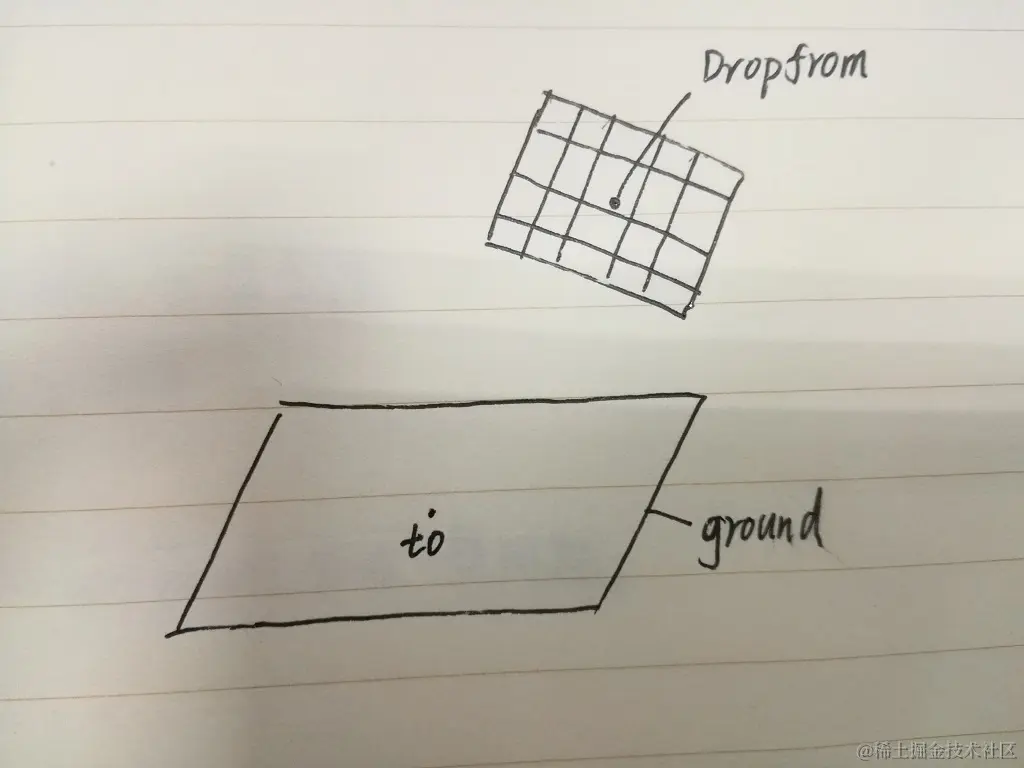 Dropfrom
to
ground
@稀土掘金技术社区